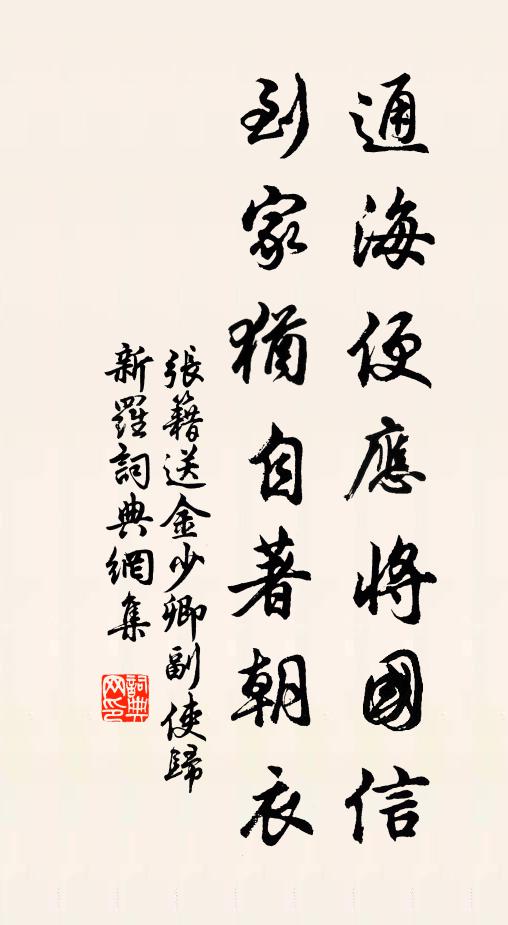 通海便應將國信
到家猶自著朝衣
張籍送金少卿副使歸
新羅詞典網集
詞典
网印